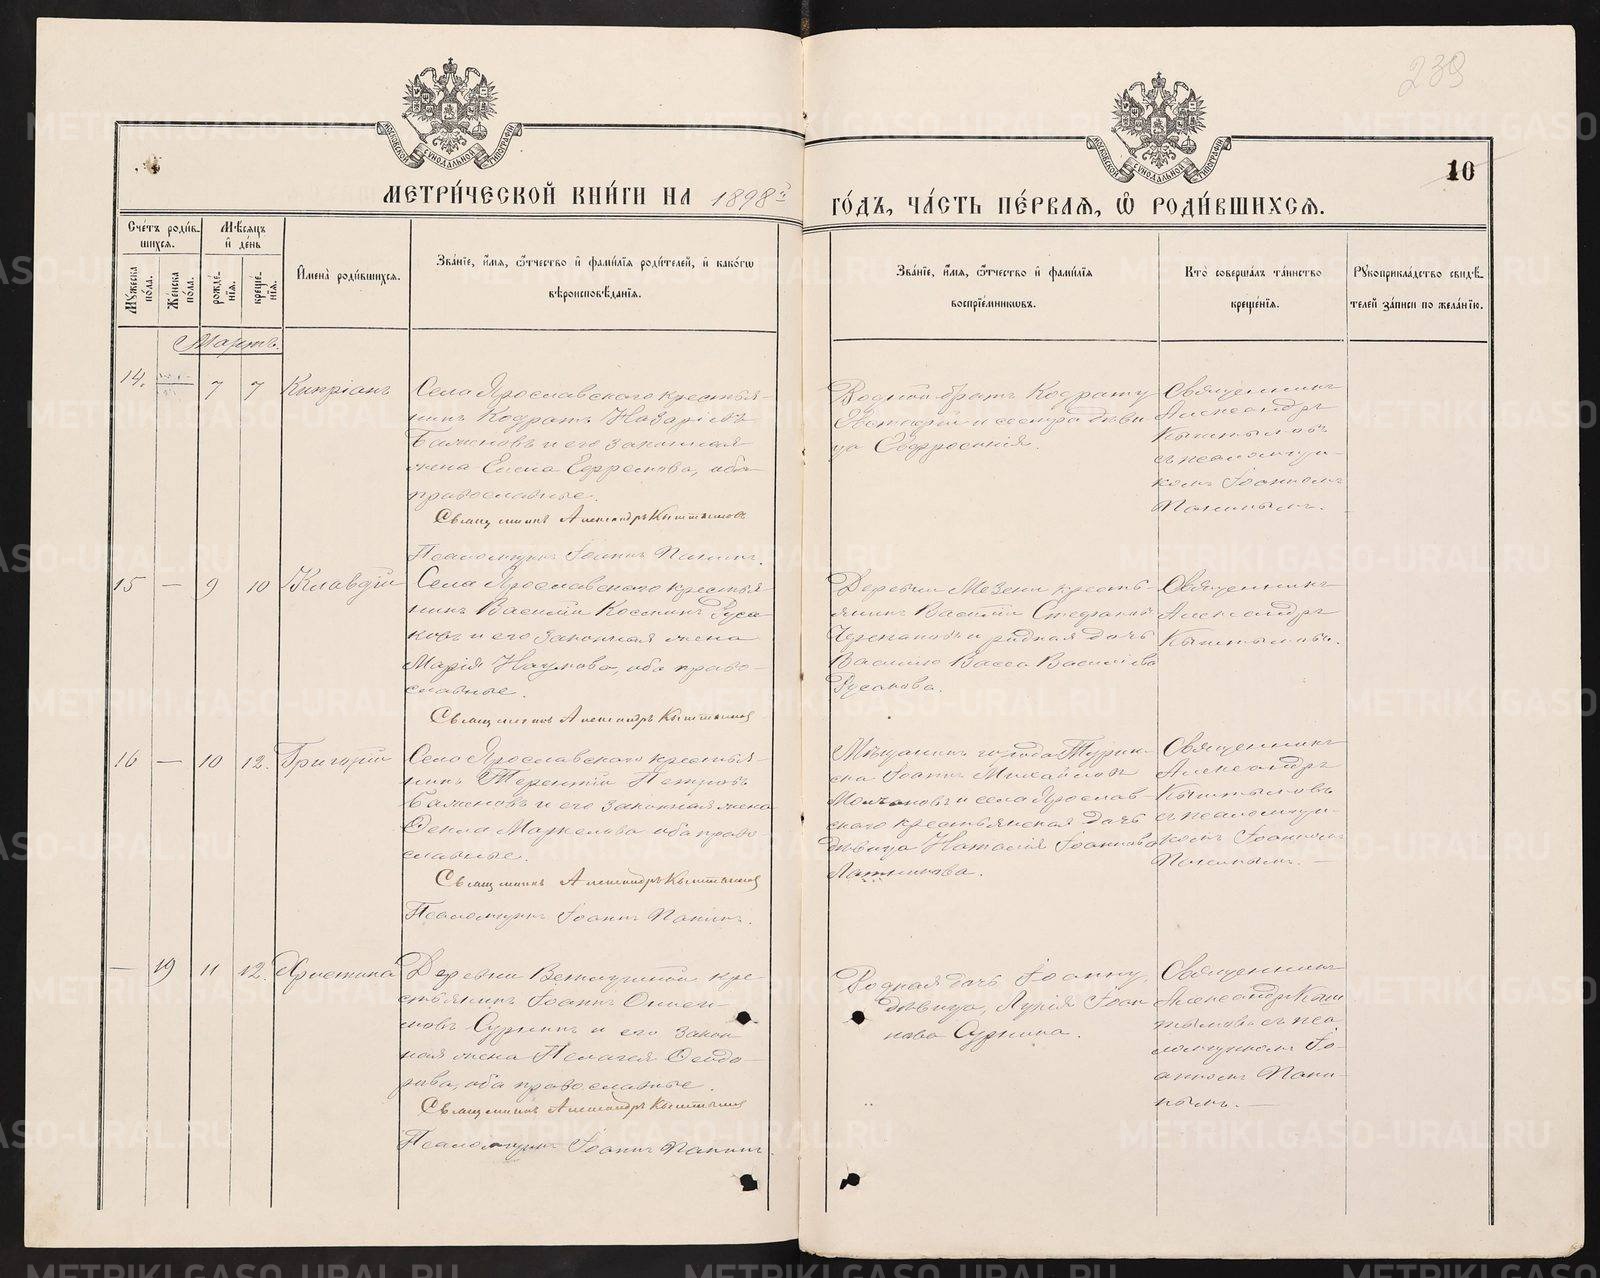 239
МОСКОВСКОЙ СУНОДАЛЬНОЙ ТИПОГРАФІИ
МОСКОВСКОЙ СУНОДАЛЬНОЙ ТИПОГРАФІИ
10
МЕТРИ́ЧЕСКОЙ КНИ́ГИ НА 1898й
ГО́ДЪ, ЧА́СТЬ ПЕ́РВАѦ, Ѽ РОДИ́ВШИХСѦ.
Сче́тъ роди́в-
шихсѧ.
Мꙋ́жеска по́ла.
Же́нска по́ла.
Мѣ́сѧцъ
и҆ де́нь
рожде́нїѧ.
креще́нїѧ.
И҆мена̀ роди́вшихсѧ.
Зва́нїе, и҆́мѧ, ѻ҆́тчество и҆ фами́лїѧ роди́телей, и҆ како́гѡ
вѣроисповѣ́данїѧ.
Зва́нїе, и҆́мѧ, ѻ҆́тчество и҆ фами́лїѧ
воспрїе́мникѡвъ.
Кто̀ соверша́лъ та́инство
креще́нїѧ.
Рꙋкоприкла́дство свидѣ́-
телей за́писи по жела́нїю.
Мартъ.
14. — 7 7 Кипріанъ
Села Ярославского крестья-
нинъ Кодратъ Назаріевъ
Балиновъ и его законная
жена Елена Ефремова, оба
православные.
Священникъ Александръ Кыштымовъ
Псаломщикъ Іоаннъ Панинъ.
Родной братъ Кодрату
Евстафій и сестра дѣви
ца Евфросинія.
Священникъ
Александръ
Кыштымовъ
съ псаломщи-
комъ Іоанномъ
Панинымъ.
15 — 9 10 Клавдій
Села Ярославского крестья
нинъ Василій Космин Руса
ковъ и его законная жена
Марія Наумова, оба право-
славные.
Священникъ Александръ Кыштымовъ
Деревни Мезени кресть-
янинъ Василій Стефановъ
Черепановъ и родная дочь
Василію Васса Васильева
Русакова.
Священникъ
Александръ
Кыштымовъ.
16 — 10 12. Григорій
Села Ярославского крестья-
нинъ Терентій Петровъ
Балиновъ и его законная жена
Ѳекла Маркелова оба право
славные.
Священникъ Александръ Кыштымовъ
Псаломщикъ Іоаннъ Панинъ.
Мѣщанинъ города Турин-
ска Іоаннъ Михайловъ
Молчановъ и села Ярослав-
ского крестьянская дочь
дѣвица Наталія Іоаннова
Священникъ
Александръ
Кыштымовъ
съ псаломщи-
комъ Іоанномъ
Панинымъ. —
— 19 11 12. Христина
Деревни кре-
стьянинъ Іоаннъ
новъ Суринъ и его закон
ная жена Пелагея Ѳеодо-
рова, оба православные.
Священникъ Александръ Кыштымовъ
Псаломщикъ Іоаннъ Панинъ.
Родная дочь Іоанну,
дѣвица, Іоан
нова Сурина.
Священникъ
Александръ Кыш
тымовъ съ пса
ломщикомъ Іо-
анномъ Пани-
нымъ. —
METRIKI.GASO-URAL.RU